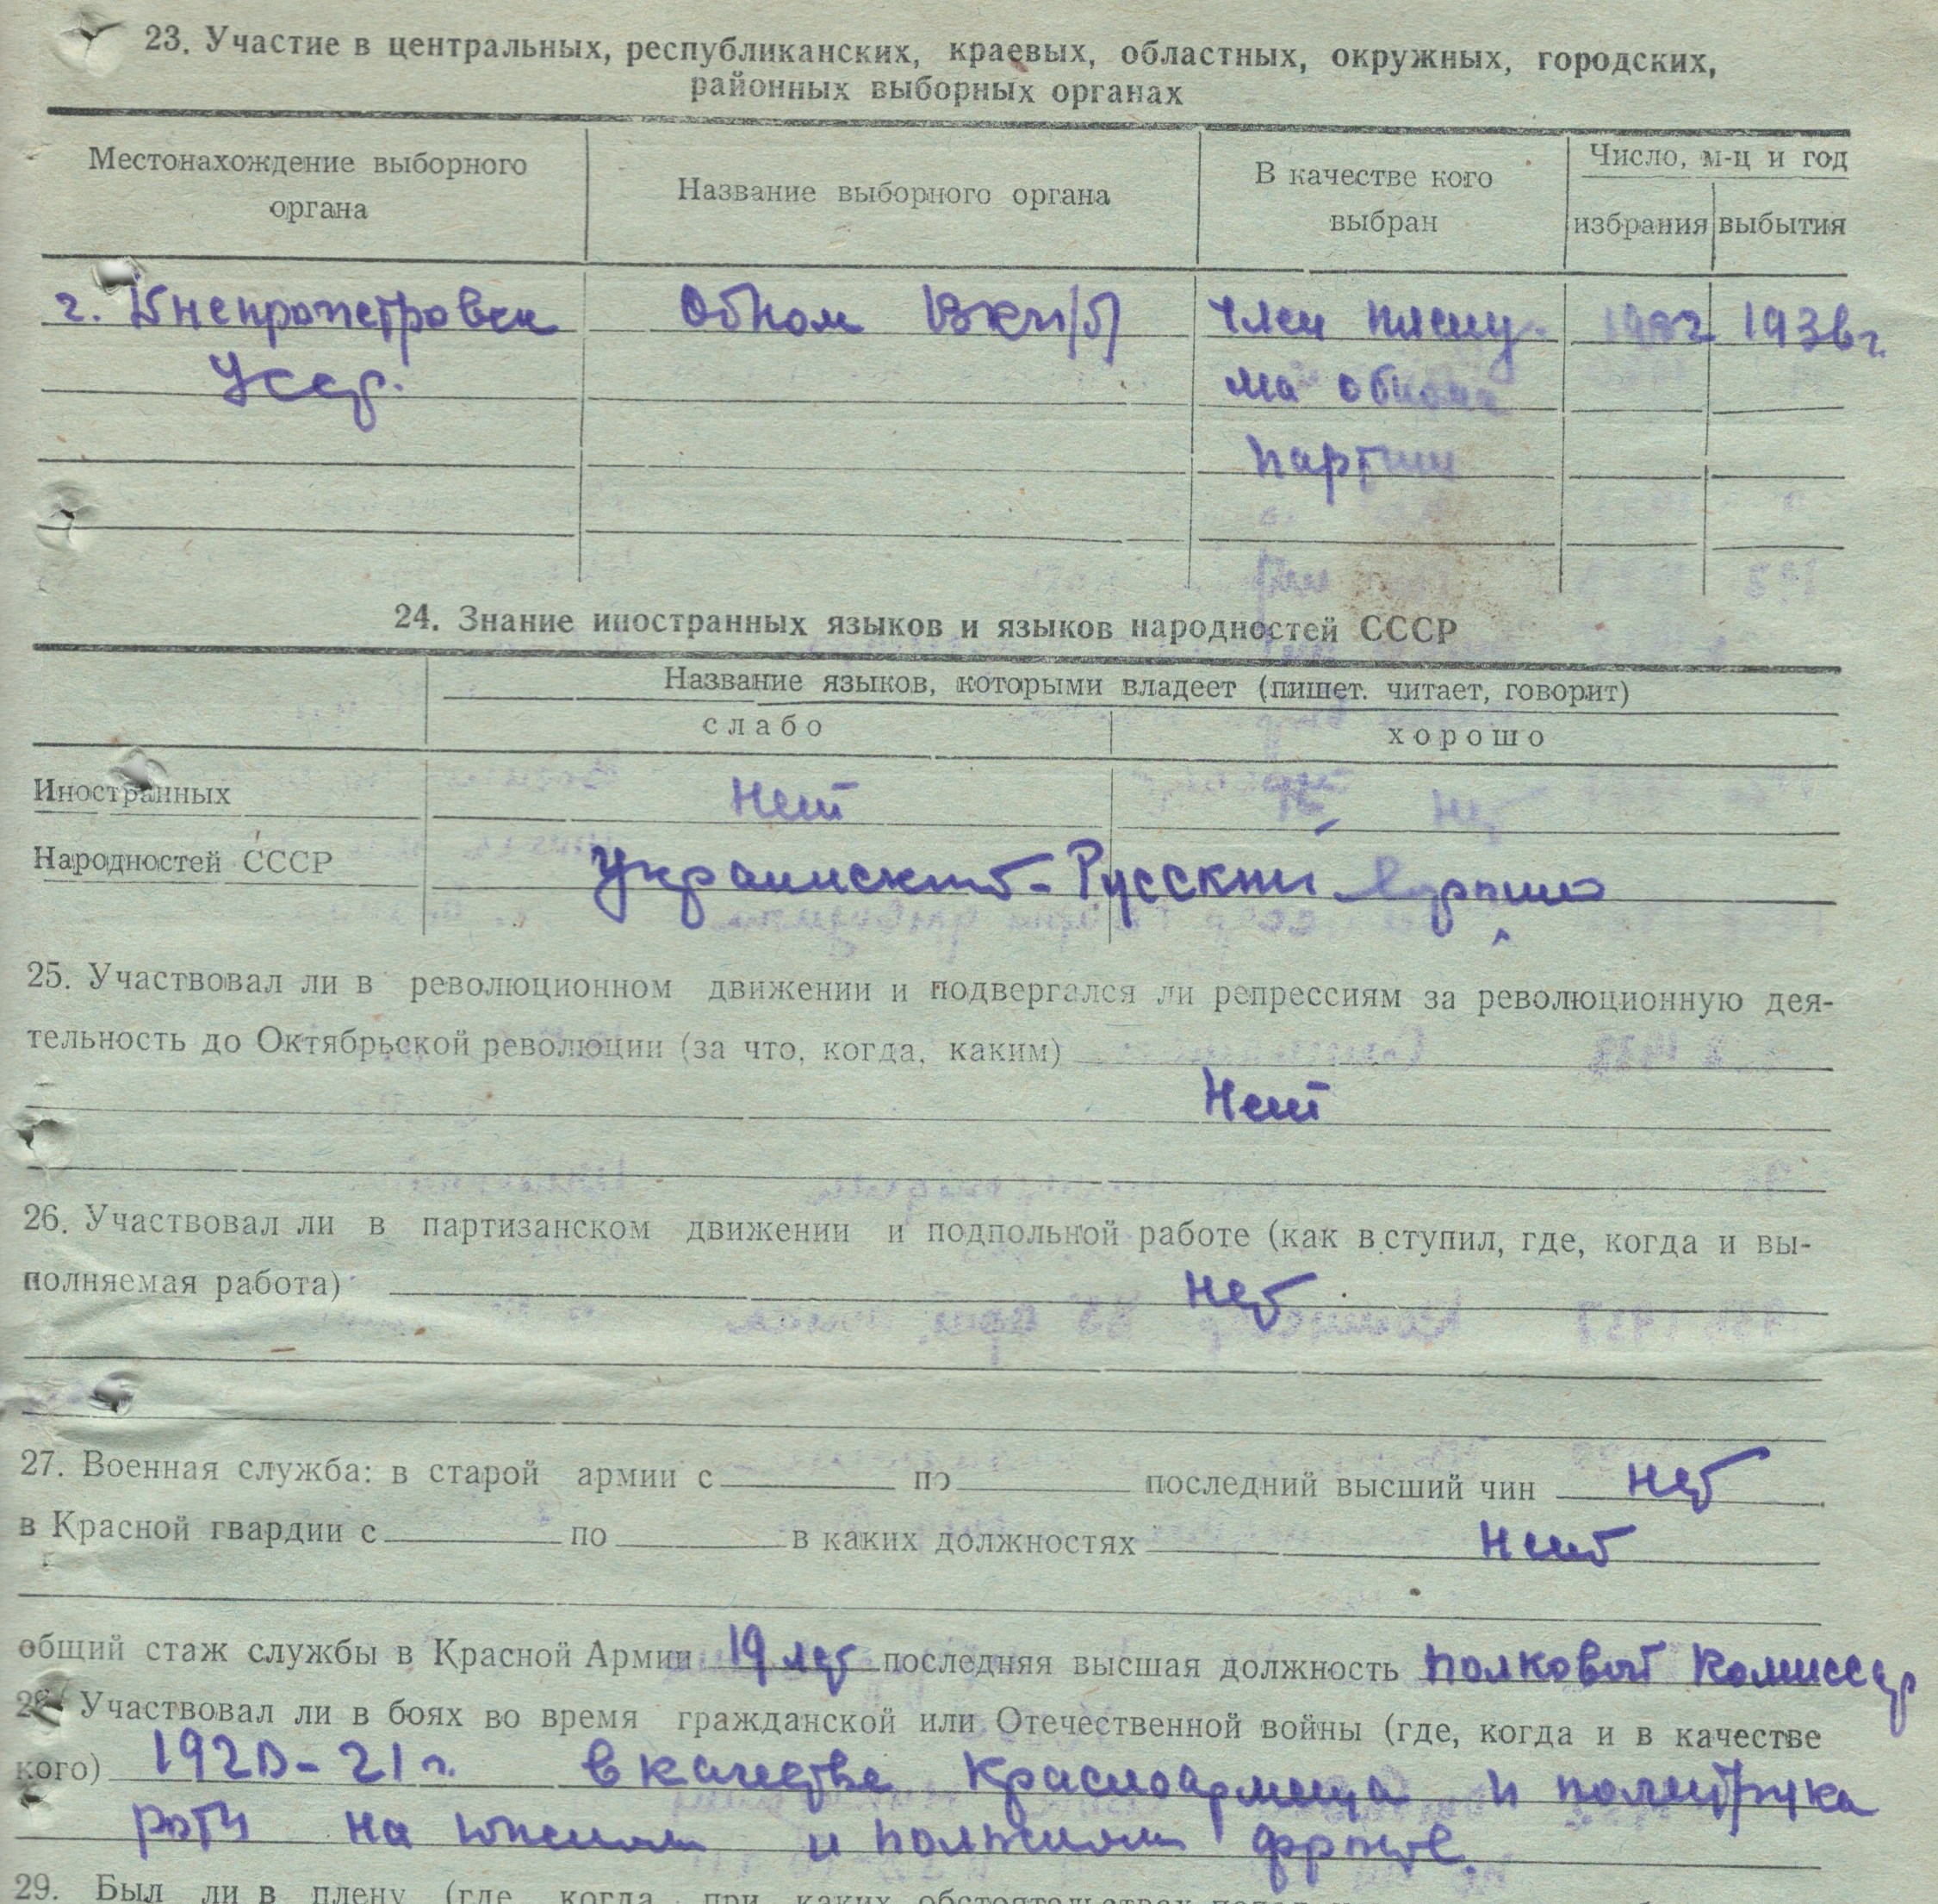 23. Участие в центральных, республиканских, краевых, областных, окружных, городских,
районных выборных органах
Местонахождение выборного
органа
Название выборного органа
В качестве кого
выбран
Число, м-ц и год
избрания
выбытия
г. Днепропетровск
УССР.
Обком ВКП/б/
член плену-
ма обкома
партии
1936г.
24. Знание иностранных языков и языков народностей СССР
Название языков, которыми владеет (пишет. читает, говорит)
слабо
хорошо
Иностранных
Нет
нет
Народностей СССР
Украинский - Русский хорошо
25. Участвовал ли в революционном движении и подвергался ли репрессиям за революционную дея-
тельность до Октябрьской революции (за что, когда, каким)
Нет
26. Участвовал ли в партизанском движении и подпольной работе (как вступил, где, когда и вы-
полняемая работа)
нет
27. Военная служба: в старой армии с по последний высший чин нет
в Красной гвардии с по в каких должностях нет
общий стаж службы в Красной Армии 19 лет последняя высшая должность полковой комиссар
28. Участвовал ли в боях во время гражданской или Отечественной войны (где, когда и в качестве
кого) 1920-21 г. в качестве красноармейца и политрука
роты на южном и польском фронте.
29. Был ли в плену (где, когда, при каких обстоятельствах